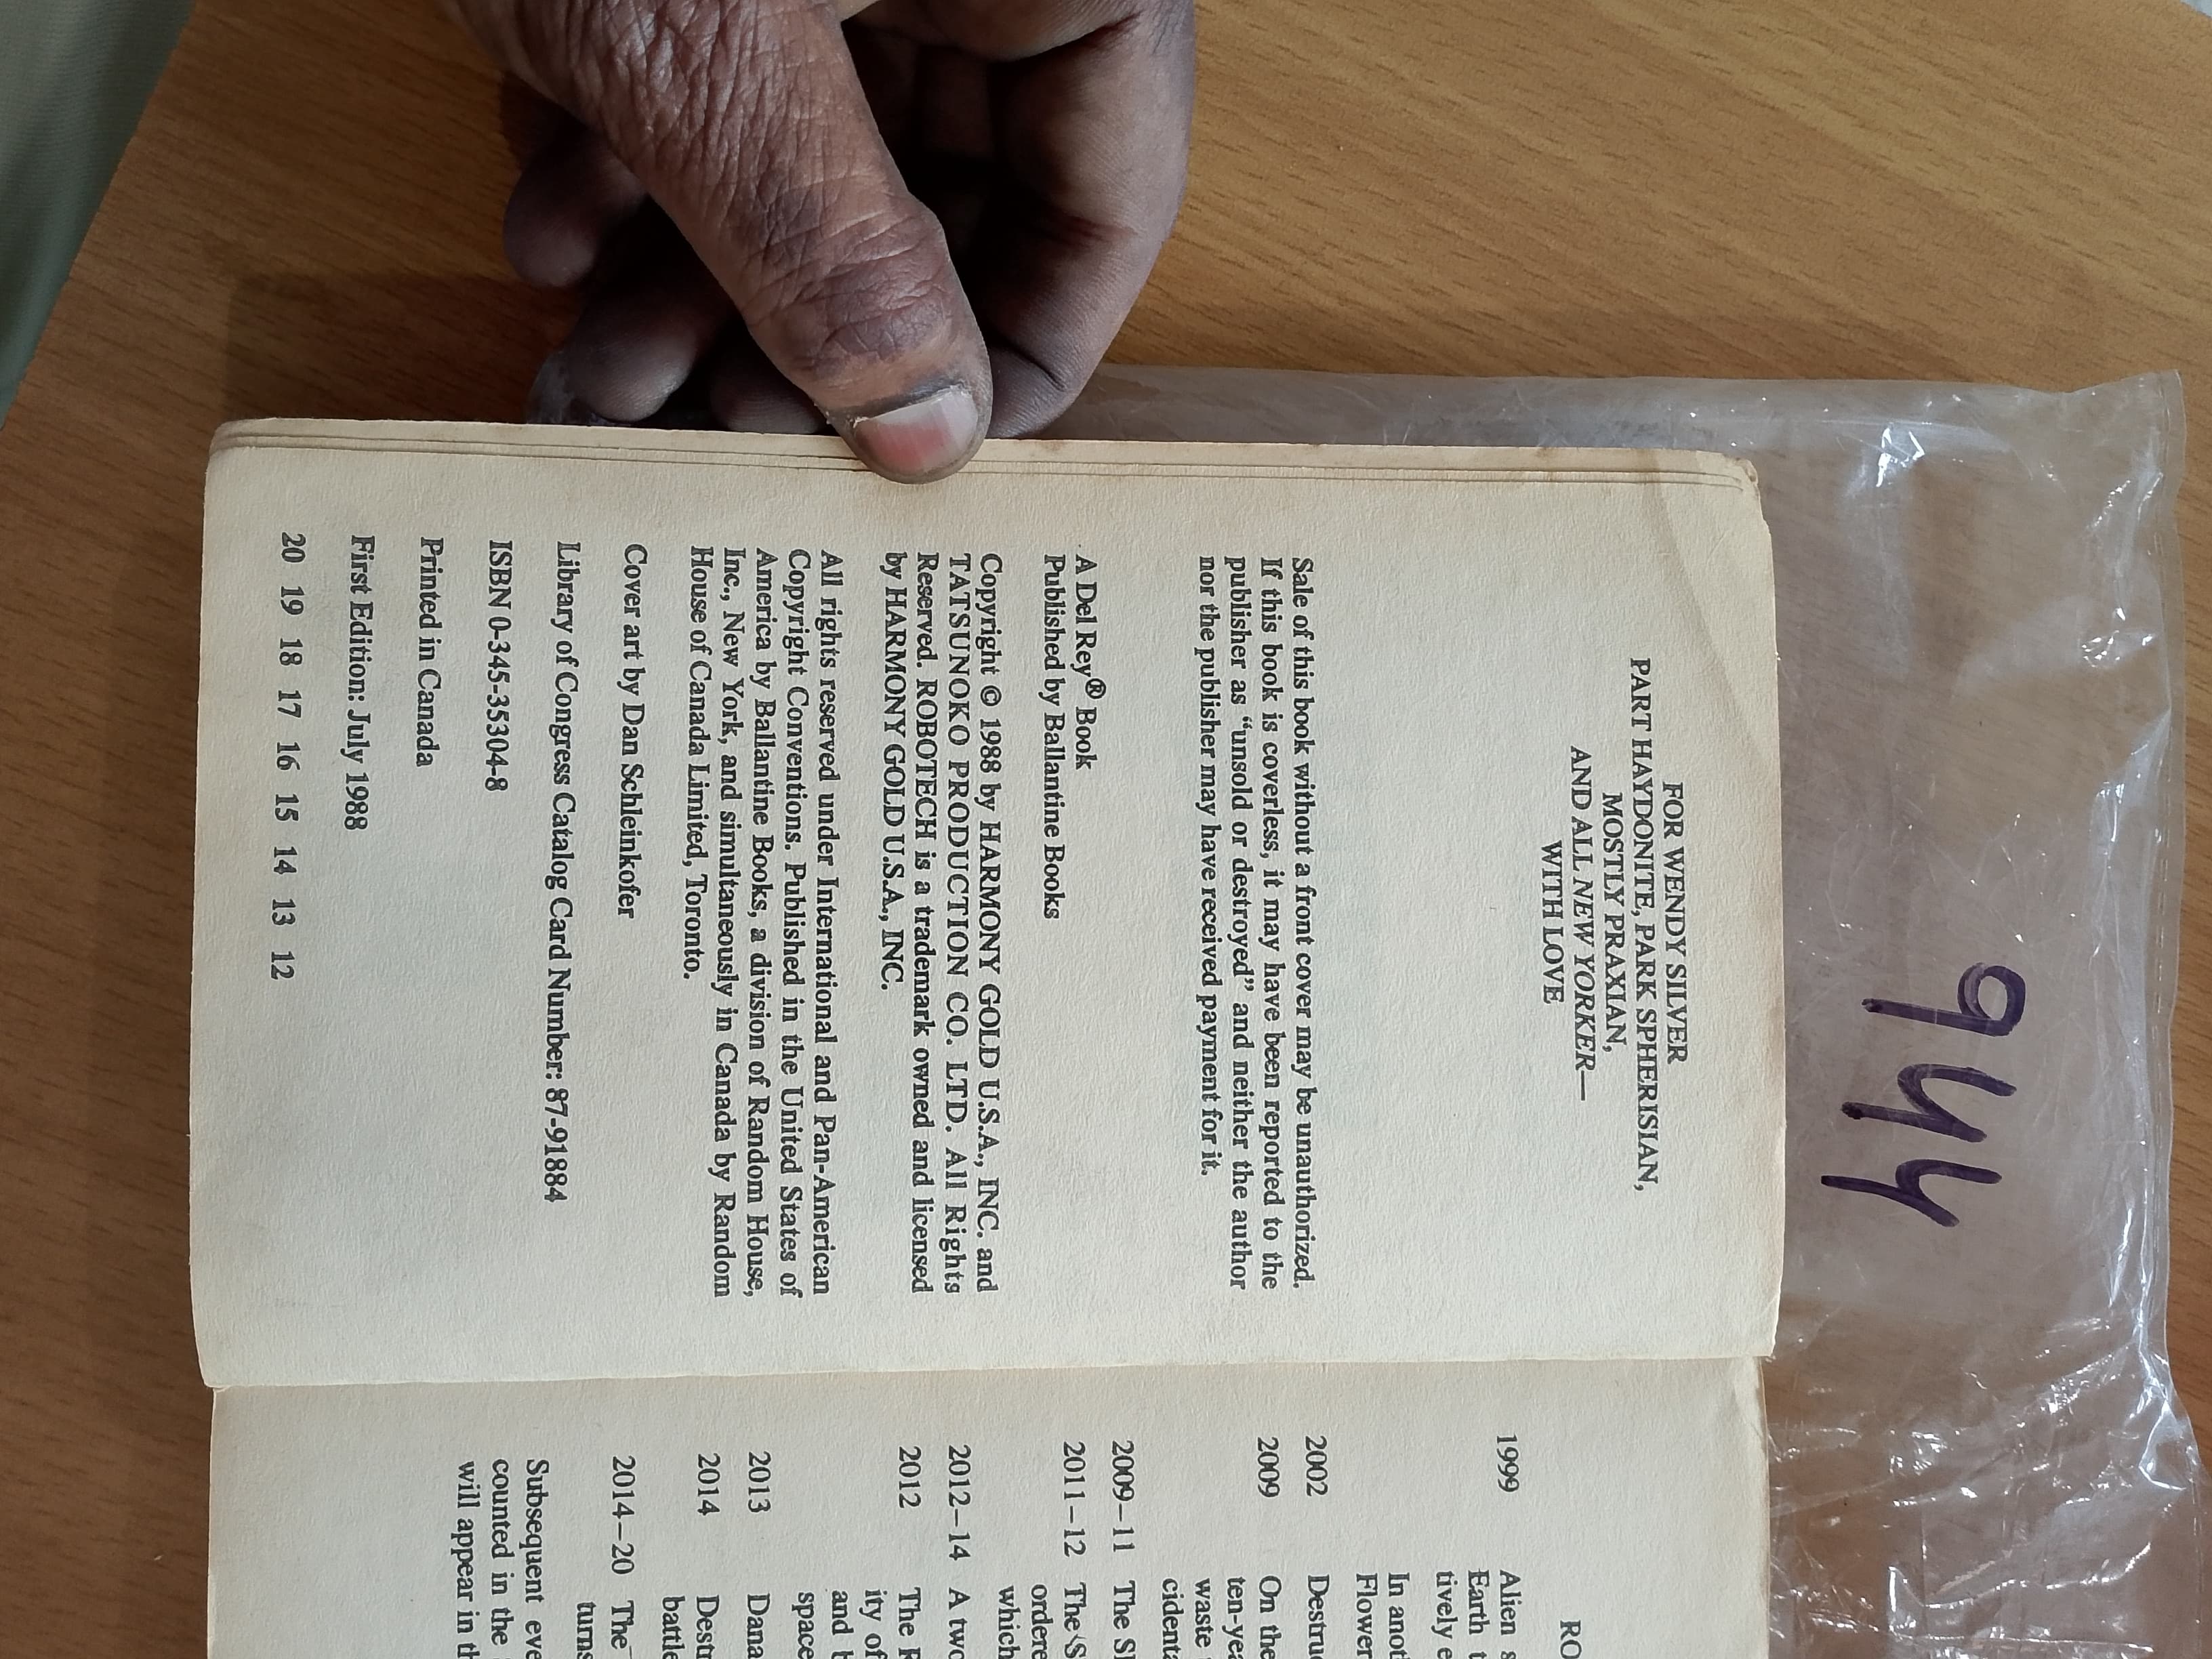 944
FOR WENDY SILVER
PART HAYDONITE, PARK SPHERISIAN,
MOSTLY PRAXIAN,
AND ALL NEW YORKER—
WITH LOVE
Sale of this book without a front cover may be unauthorized.
If this book is coverless, it may have been reported to the
publisher as “unsold or destroyed” and neither the author
nor the publisher may have received payment for it.
A Del Rey® Book
Published by Ballantine Books
Copyright © 1988 by HARMONY GOLD U.S.A., INC. and
TATSUNOKO PRODUCTION CO. LTD. All Rights
Reserved. ROBOTECH is a trademark owned and licensed
by HARMONY GOLD U.S.A., INC.
All rights reserved under International and Pan-American
Copyright Conventions. Published in the United States of
America by Ballantine Books, a division of Random House,
Inc., New York, and simultaneously in Canada by Random
House of Canada Limited, Toronto.
Cover art by Dan Schleinkofer
Library of Congress Catalog Card Number: 87-91884
ISBN 0-345-35304-8
Printed in Canada
First Edition: July 1988
20 19 18 17 16 15 14 13 12
RO
1999 Alien s
Earth t
tively e
In anot
Flower
2002 Destruc
2009 On the
ten-yea
waste
cidenta
2009–11 The S
2011–12 The S
ordere
which
2012–14 A two
2012 The R
ity of
and b
space
2013 Dana
2014 Destr
battle
2014–20 The
turns
Subsequent eve
counted in the
will appear in th